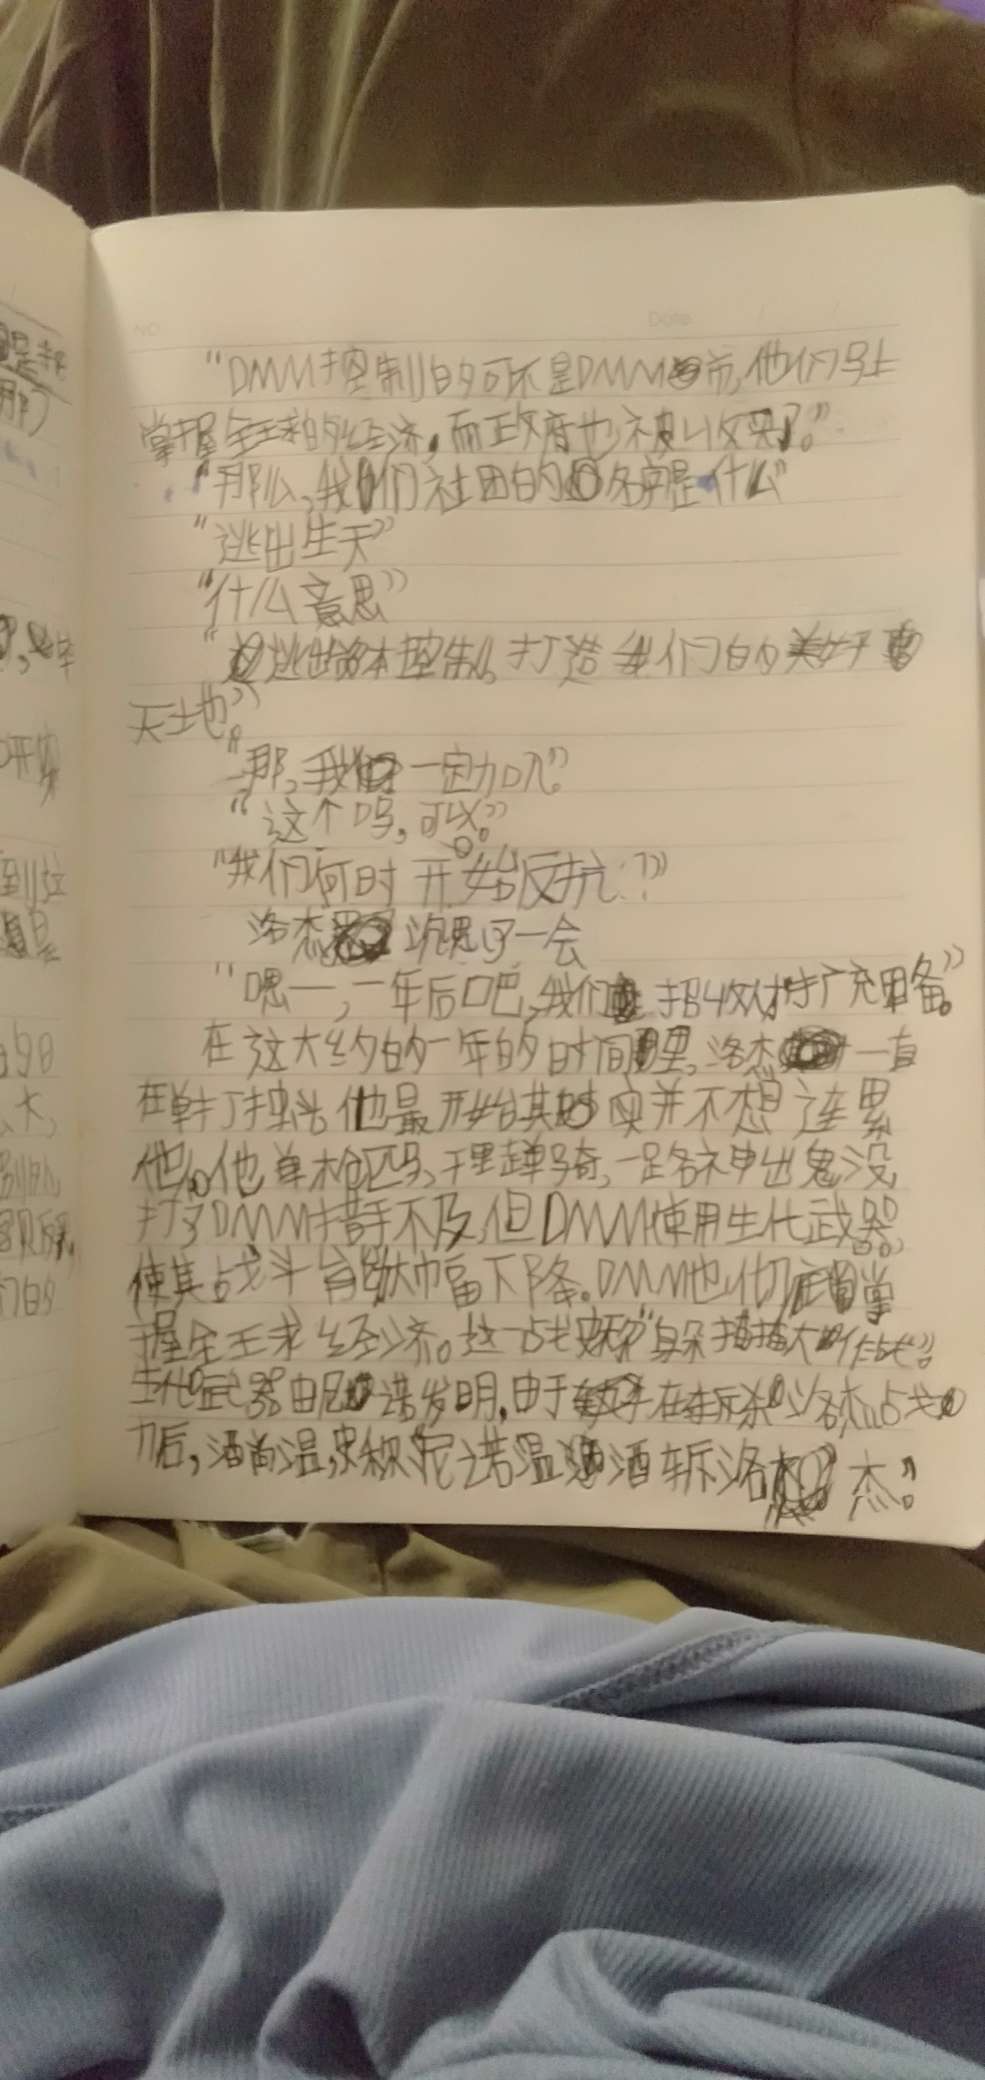 NO
Date
"DMM控制的可不是DMM市,他们马上
掌握全球的经济,而政府也被收买了。"
"那么,我们社团的名字是什么"
"逃出生天"
"什么意思"
"逃出资本控制,打造我们的美好
天地"。
"那,我一定加入。"
"这个吗,可以。"
"我们何时开始反抗?"
洛杰沉思了一会
"嗯一,一年后吧,我们招收人才扩充军备。"
在这大约的一年的时间里,洛杰一直
在单打独斗他最开始其实并不想连累
他人他单枪匹马,千里单骑,一路神出鬼没
打了DMM措手不及,但DMM使用生化武器,
使其战斗能力大幅下降。DMM也彻底掌
握全球经济。这一战史称"大作战"。
生化武器由尼诺发明,由于在斩杀洛杰战
力后,酒尚温,史称"尼诺温酒斩洛杰"。